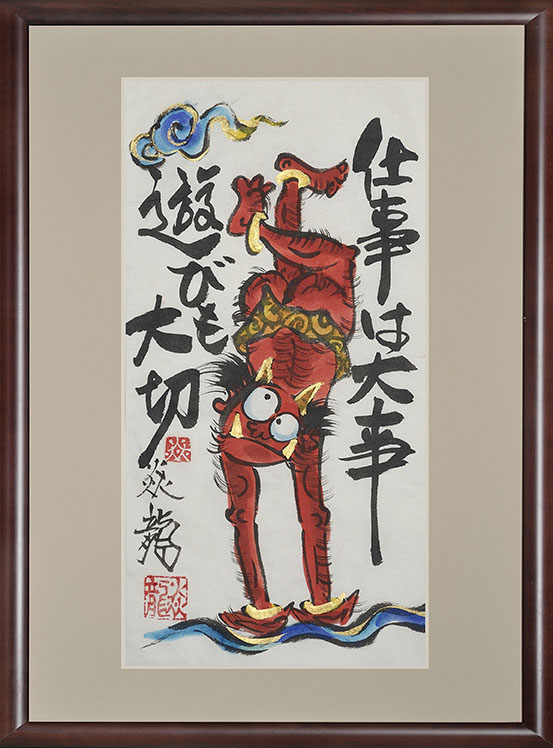 仕事は大事
遊びも大切
焱
焱龍
焱龍